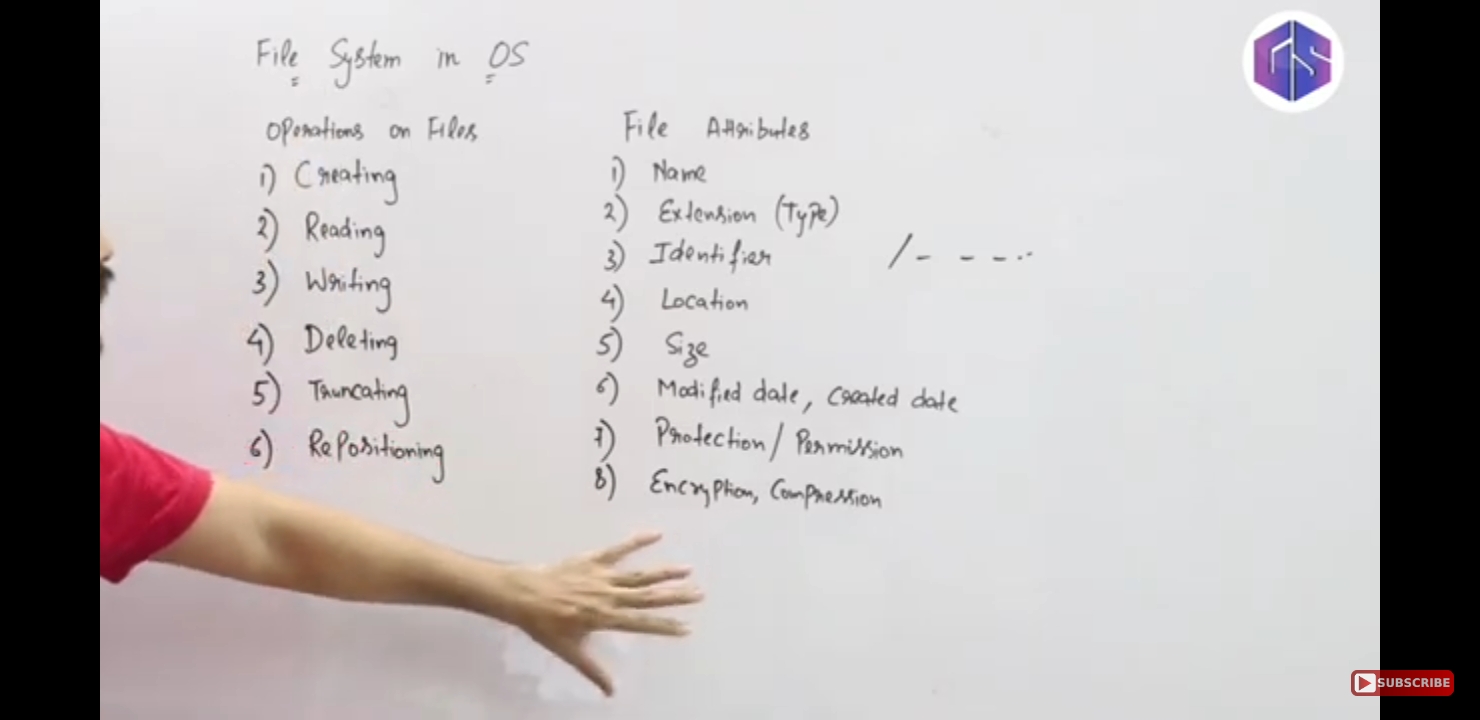 File System in OS
Operations on Files
1) Creating
2) Reading
3) Writing
4) Deleting
5) Truncating
6) Repositioning
File Attributes
1) Name
2) Extension (Type)
3) Identifier /- - - - -
4) Location
5) Size
6) Modified date, Created date
7) Protection/Permission
8) Encryption, Compression
GS
SUBSCRIBE